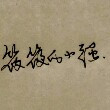 筱筱的小强.